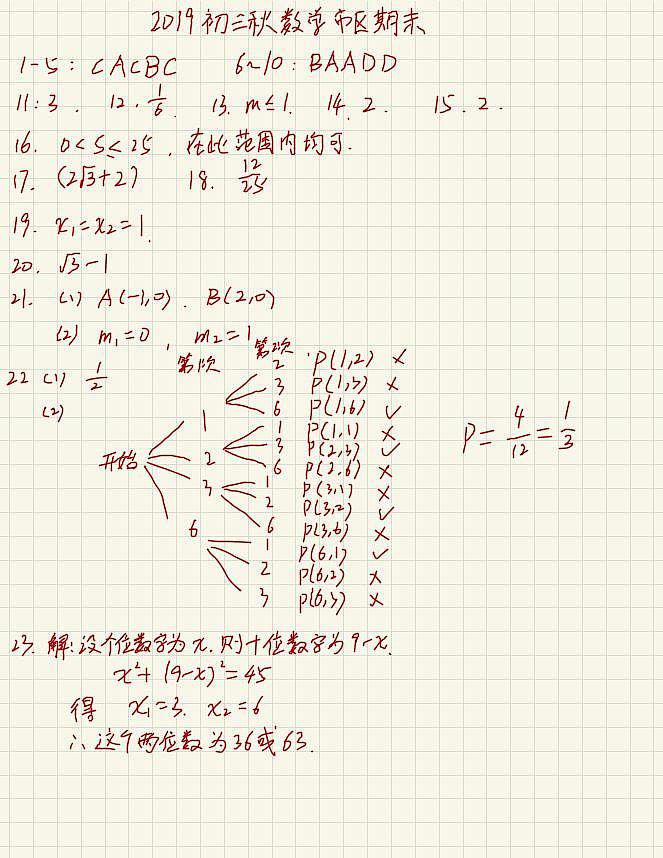 2019初三秋数学市区期末
1-5：CACBC 6~10：BAADD
11：3. 12. 1/6 13. m≤1. 14. 2. 15. 2.
16. 0<S≤25，在此范围内均可.
17. (2√3+2) 18. 12/25
19. x₁=x₂=1.
20. √3-1
21. (1) A(-1,0). B(2,0)
(2) m₁=0，m₂=1
22 (1) 1/2
(2) 第1次 第2次
开始
1 2 P(1,2) ×
3 P(1,3) ×
6 P(1,6) ✓
2 1 P(1,1) ×
3 P(2,3) ✓
6 P(2,6) ×
3 1 P(3,1) ×
2 P(3,2) ✓
6 P(3,6) ×
6 1 P(6,1) ✓
2 P(6,2) ×
3 P(6,3) ×
P=4/12=1/3
23. 解：设个位数字为x. 则十位数字为9-x.
x²+(9-x)²=45
得 x₁=3. x₂=6
∴这个两位数为36或63.